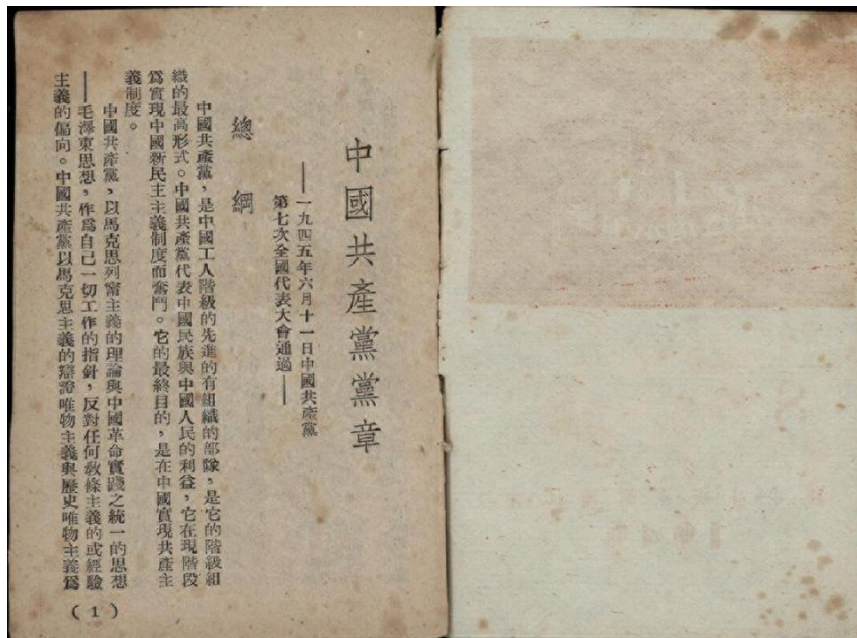 中國共產黨黨章
——一九四五年六月十一日中國共產黨
第七次全國代表大會通過——
總綱
中國共產黨，是中國工人階級的先進的有組織的部隊，是它的階級組
織的最高形式。中國共產黨代表中國民族與中國人民的利益，它在現階段
爲實現中國新民主主義制度而奮鬥。它的最終目的，是在中國實現共產主
義制度。
中國共產黨，以馬克思列甯主義的理論與中國革命實踐之統一的思想
——毛澤東思想，作爲自己一切工作的指針，反對任何敎條主義的或經驗
主義的偏向。中國共產黨以馬克思主義的辯證唯物主義與歷史唯物主義爲
(1)